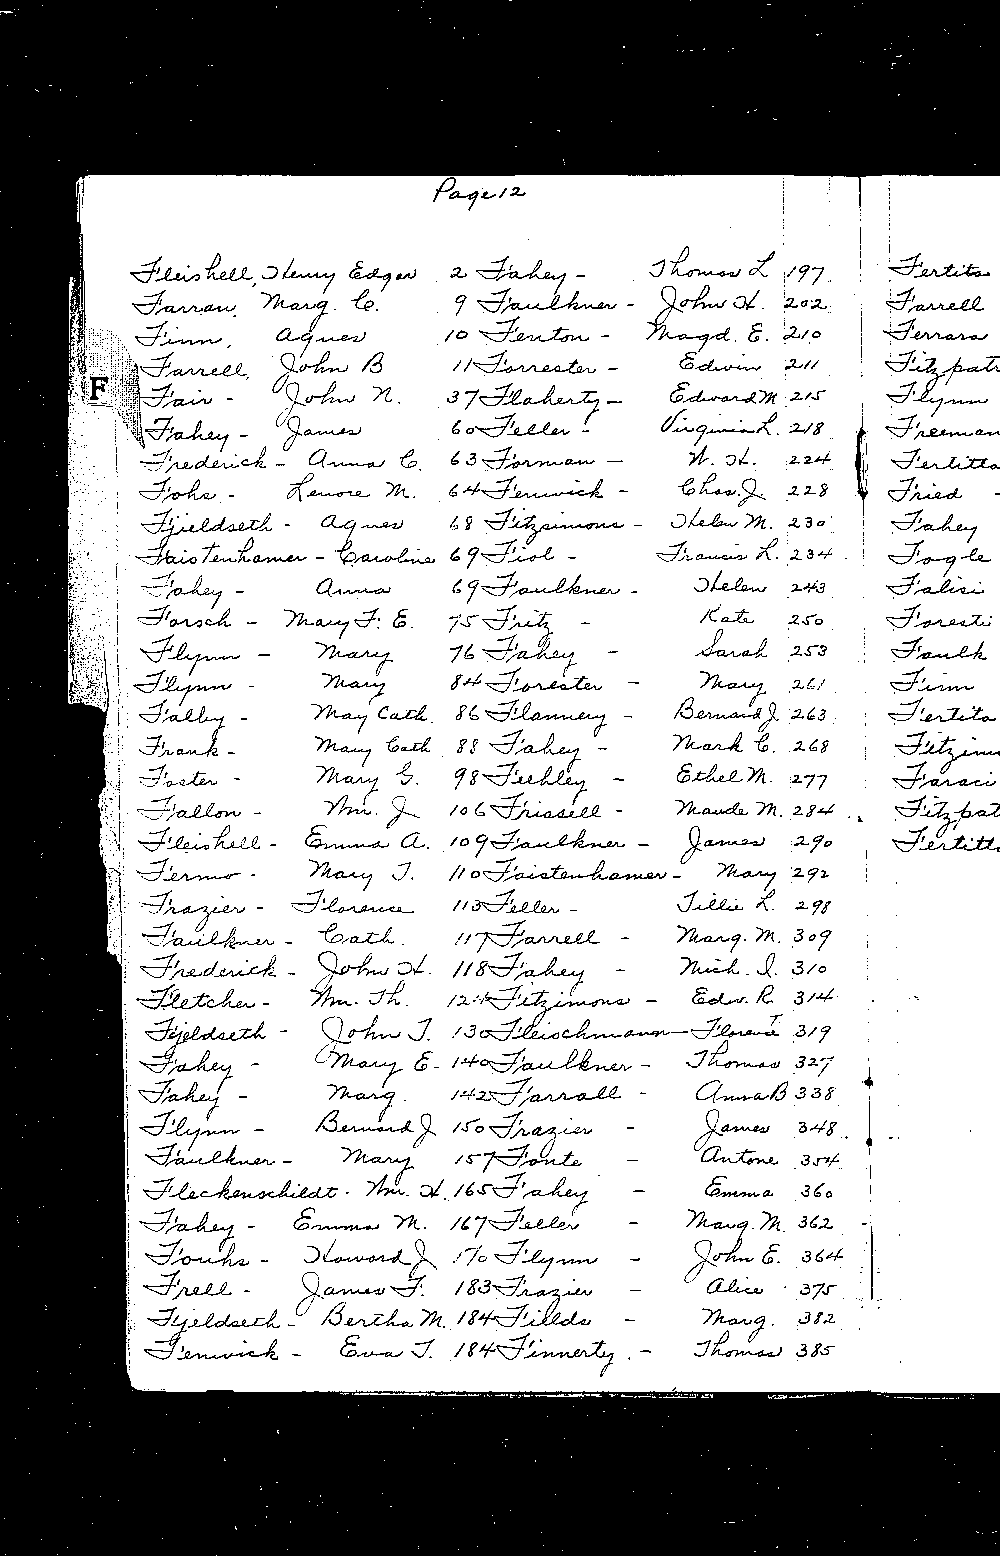 Page 12
Fleishell, Henry Edgar 2 Fahey - Thomas L 197 Fertita
Farran, Marg. C. 9 Faulkner - John H. 202 Farrell
Finn, Agnes 10 Fenton - Magd. E. 210 Ferrara
Farrell, John B 11 Forrester - Edwin 211 Fitzpatr
F Fair - John N. 37 Flaherty - Edward M 215 Flynn
Fahey - James 60 Feller - Virginia L. 218 Freeman
Frederick - Anna C. 63 Forman - W. H. 224 Fertitta
Fohs - Lenore M. 64 Fenwick - Chas. J. 228 Fried -
Fjieldseth - Agnes 68 Fitzsimons - Helen M. 230 Fahey
Faistenhamer - Caroline 69 Fiol - Francis L. 234 Fogle
Fahey - Anna 69 Faulkner - Helen 243 Falisi
Forsch - Mary F. E. 75 Fritz - Kate 250 Foresti
Flynn - Mary 76 Fahey - Sarah 253 Faulk
Flynn - Mary 84 Forester - Mary 261 Finn
Falby - May Cath. 86 Flannery - Bernard J. 263 Fertita
Frank - Mary Cath 88 Fahey - Mark C. 268
Foster - Mary G. 98 Feehley - Ethel M. 277 Faraci
Fallon - Wm. J. 106 Frissell - Maude M. 284 Fitzpat
Fleishell - Emma A. 109 Faulkner - James 290 Fertitt
Fermo - Mary T. 110 Faistenhamer - Mary 292
Frazier - Florence 113 Feller - Tillie L. 298
Faulkner - Cath. 117 Farrell - Marg. M. 309
Frederick - John H. 118 Fahey - Mich. J. 310
Fletcher - Wm. Th. 124 Fitzimons - Edw. R. 314
Fjeldseth - John T. 130 Fleischmann - Florence T 319
Fahey - Mary E - 140 Faulkner - Thomas 327
Fahey - Marg. 142 Farrall - Anna B 338
Flynn - Bernard J 150 Frazier - James 348
Faulkner - Mary 157 Fonte - Antone 354
Fleckenschildt - Wm. H. 165 Fahey - Emma 360
Fahey - Emma M. 167 Feller - Marg. M. 362
Fouhs - Howard J 170 Flynn - John E. 364
Frell - James F. 183 Frazier - Alice 375
Fjeldseth - Bertha M. 184 Fields - Marg. 382
Fenwick - Eva T. 184 Finnerty. - Thomas 385